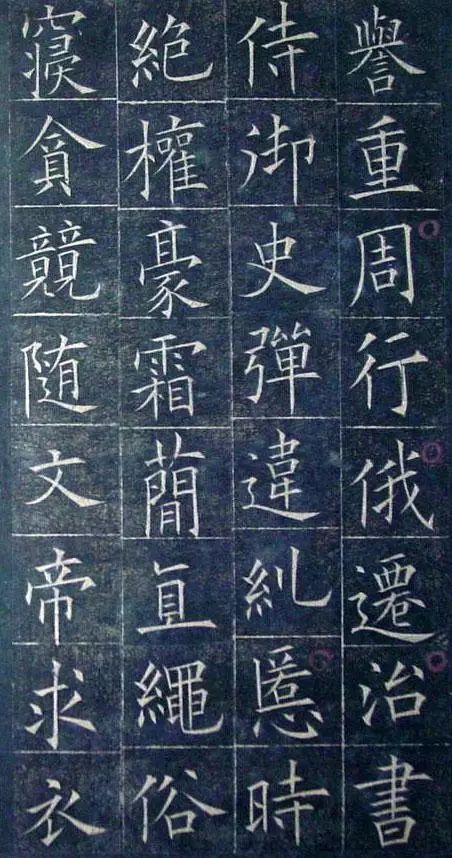 譽重周行俄遷治書
侍御史彈違糺慝時
絕權豪霜簡直繩俗
寢貪競随文帝求衣